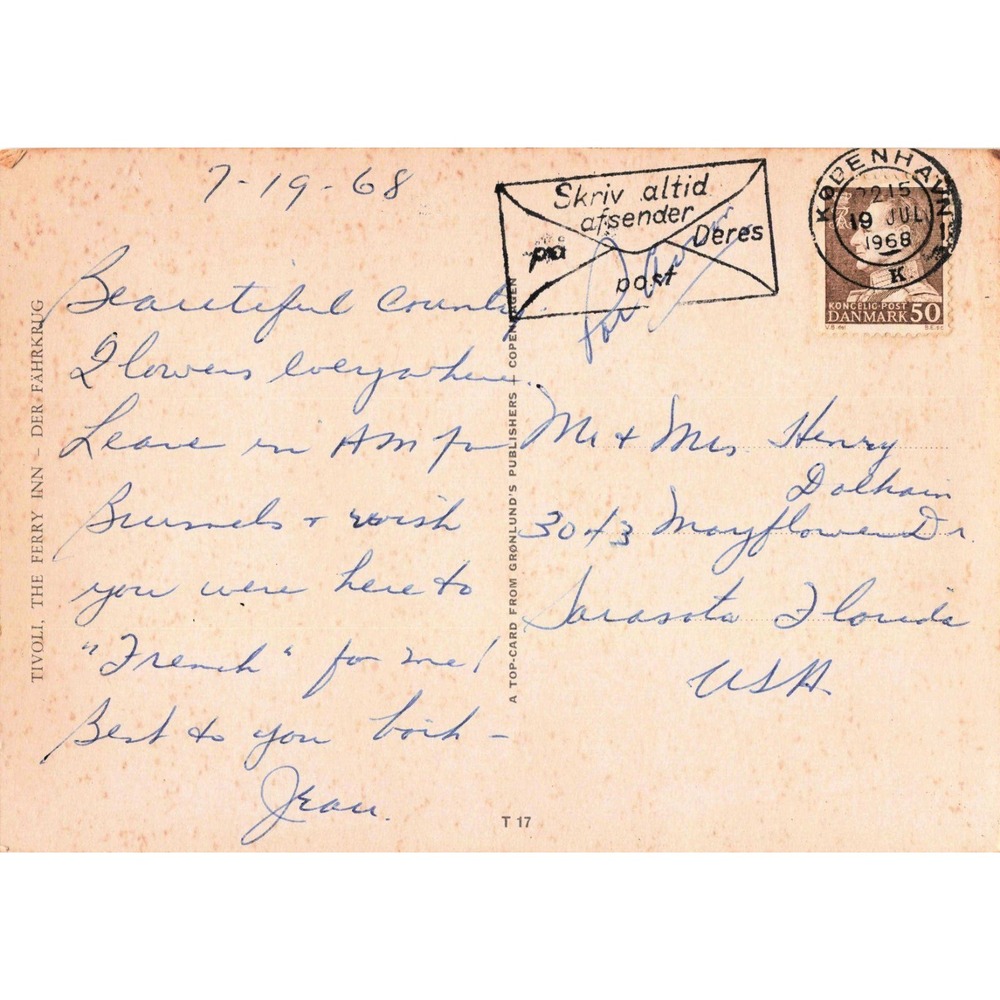 7-19-68
Beautiful country
Flowers everywhere.
Leave in AM for
Brussels + wish
you were here to
"French" for me!
Best to you both -
Jean.
TIVOLI, THE FERRY INN - DER FÄHRKRUG
A TOP-CARD FROM GRØNLUND'S PUBLISHERS - COPENHAGEN
T 17
Skriv altid
afsender
på Deres
post
Par Avion
KØBENHAVN
2215
19 JUL
1968
K
KONGELIG POST
DANMARK 50
Mr + Mrs. Henry
3043 Mayflower Dr.
Sarasota Florida
USA.